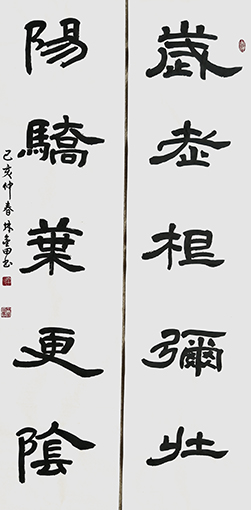 歲老根彌壯
陽驕葉更陰
己亥仲春